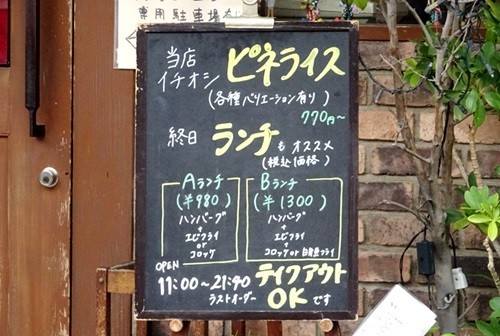 専用駐車場
当店
イチオシ ピネライス
(各種バリエーション有り)
770円~
終日 ランチもオススメ
(税込価格)
Aランチ
(¥980)
ハンバーグ
+
エビフライ
or
コロッケ
Bランチ
(¥1300)
ハンバーグ
+
エビフライ
+
コロッケor白身魚フライ
OPEN
11:00~21:40 テイクアウト
ラストオーダー OKです